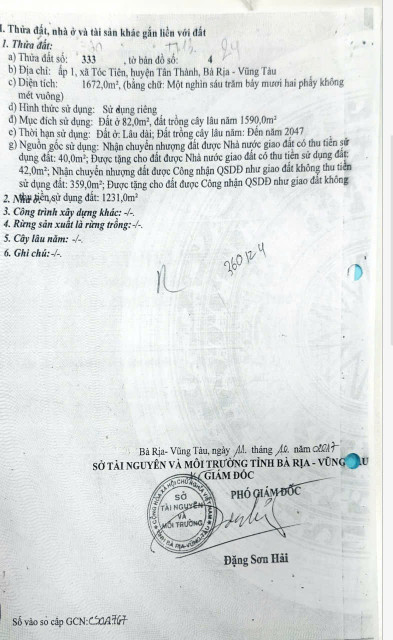 I. Thửa đất, nhà ở và tài sản khác gắn liền với đất
1. Thửa đất:
a) Thửa đất số: 333 , tờ bản đồ số: 4
b) Địa chỉ: ấp 1, xã Tóc Tiên, huyện Tân Thành, Bà Rịa - Vũng Tàu
c) Diện tích: 1672,0m², (bằng chữ: Một nghìn sáu trăm bảy mươi hai phẩy không
mét vuông)
d) Hình thức sử dụng: Sử dụng riêng
đ) Mục đích sử dụng: Đất ở 82,0m², đất trồng cây lâu năm 1590,0m²
e) Thời hạn sử dụng: Đất ở: Lâu dài; Đất trồng cây lâu năm: Đến năm 2047
g) Nguồn gốc sử dụng: Nhận chuyển nhượng đất được Nhà nước giao đất có thu tiền sử
dụng đất: 40,0m²; Được tặng cho đất được Nhà nước giao đất có thu tiền sử dụng đất:
42,0m²; Nhận chuyển nhượng đất được Công nhận QSDĐ như giao đất không thu tiền
sử dụng đất: 359,0m²; Được tặng cho đất được Công nhận QSDĐ như giao đất không
thu tiền sử dụng đất: 1231,0m²
2. Nhà ở:
3. Công trình xây dựng khác: -/-.
4. Rừng sản xuất là rừng trồng: -/-.
5. Cây lâu năm: -/-.
6. Ghi chú: -/-.
Bà Rịa- Vũng Tàu, ngày 11 tháng 10 năm 2017
SỞ TÀI NGUYÊN VÀ MÔI TRƯỜNG TỈNH BÀ RỊA - VŨNG TÀU
GIÁM ĐỐC
PHÓ GIÁM ĐỐC
SỞ
TÀI NGUYÊN
VÀ
MÔI TRƯỜNG
Đặng Sơn Hải
Số vào sổ cấp GCN: